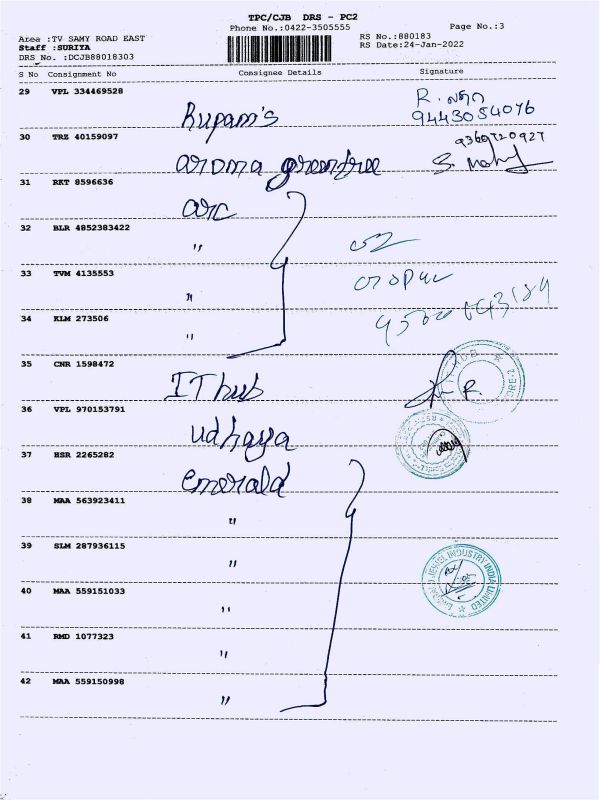 TPC/CJB DRS - PC2
Phone No.:0422-3505555
Page No.:3
Area :TV SAMY ROAD EAST
Staff :SURIYA
DRS No. :DCJB88018303
RS No.:880183
RS Date:24-Jan-2022
S No Consignment No Consignee Details Signature
29 VPL 334469528 Rupam's
9443054076
30 TRZ 40159097 aroma greentree
9360720927
31 RKT 8596636 arc
32 BLR 4852383422 "
33 TVM 4135553 "
34 KLM 273506 "
35 CNR 1598472 IT hub
36 VPL 970153791 udhaya
37 HSR 2265282 emerald
38 MAA 563923411 "
39 SLM 287936115 "
40 MAA 559151033 "
41 RMD 1077323 "
42 MAA 559150998 "
JEWEL INDUSTRY INDIA LIMITED